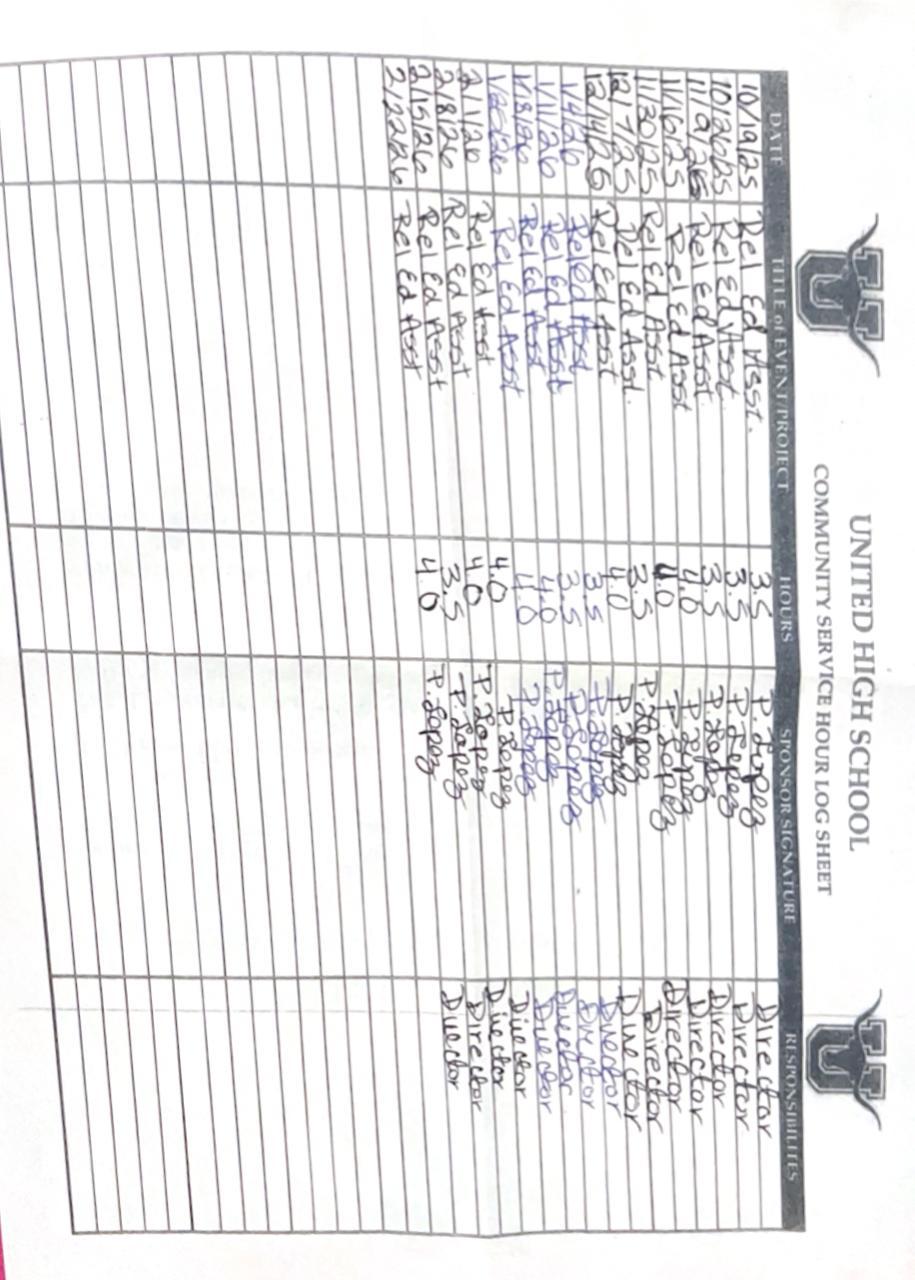 UNITED HIGH SCHOOL
COMMUNITY SERVICE HOUR LOG SHEET
DATE TITLE of EVENT/PROJECT HOURS SPONSOR SIGNATURE RESPONSIBILITES
10/19/25 Rel Ed Asst. 3.5 P. Lopez Director
10/26/25 Rel Ed Asst. 3.5 P. Lopez Director
11/2/25 Rel Ed Asst. 3.5 P. Lopez Director
11/16/25 Rel Ed Asst 4.0 P. Lopez Director
11/30/25 Rel Ed Asst. 4.0 P. Lopez Director
12/7/25 Rel Ed Asst. 3.5 P. Lopez Director
12/14/25 Rel Ed Asst 4.0 P. Lopez Director
1/4/26 Rel Ed Asst 3.5 P. Lopez Director
1/11/26 Rel Ed Asst 3.5 P. Lopez Director
1/18/26 Rel Ed Asst 4.0 P. Lopez Director
1/25/26 Rel Ed Asst 4.0 P. Lopez Director
2/1/26 Rel Ed Asst 4.0 P. Lopez Director
2/8/26 Rel Ed Asst 4.0 P. Lopez Director
2/15/26 Rel Ed Asst 3.5 P. Lopez Director
2/22/26 Rel Ed Asst 4.0 P. Lopez Director